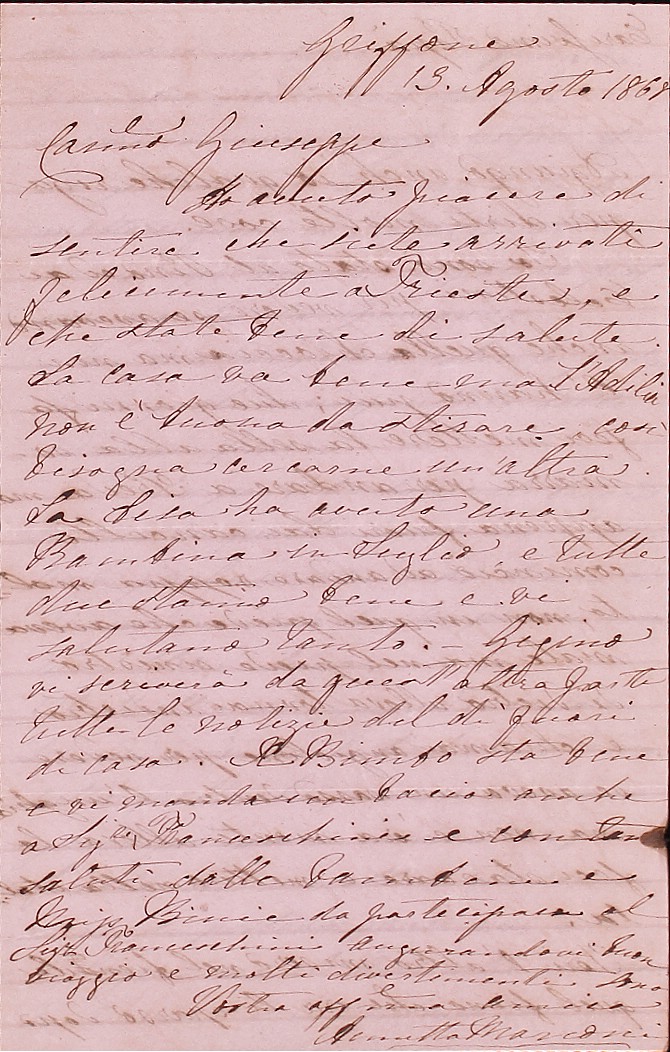 Griffone
13. Agosto 186
Carimo Giuseppe
Ho avuto piacere di
sentire che siete arrivati
felicemente a Trieste, e
che state bene di salute.
La casa va bene ma l'Adilia
non è buona da stirare, così
bisogna cercarne un'altra.
La Lisa ha avuto una
Bambina in Luglio, e tutte
due stanno bene e vi
salutano tanto. – Gigino
vi scriverà da quest'altra parte
tutte le notizie del di fuori
di casa. Il Bimbo sta bene
e vi manda un bacio anche
a Sigr Franceschini e con tan
saluti dalle bambine e
da partecipare al
Sigr Franceschini augurandovi buon
viaggio e molti divertimenti. Sono
Vostra affma amica
Annetta Marconi